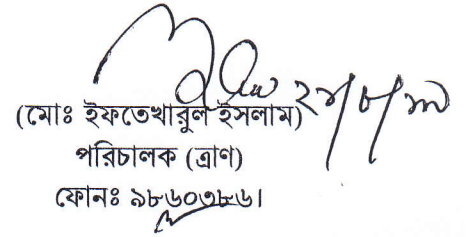 (মোঃ ইফতেখারুল ইসলাম)
পরিচালক (ত্রাণ)
ফোনঃ ৯৮৬০৩৮৬।